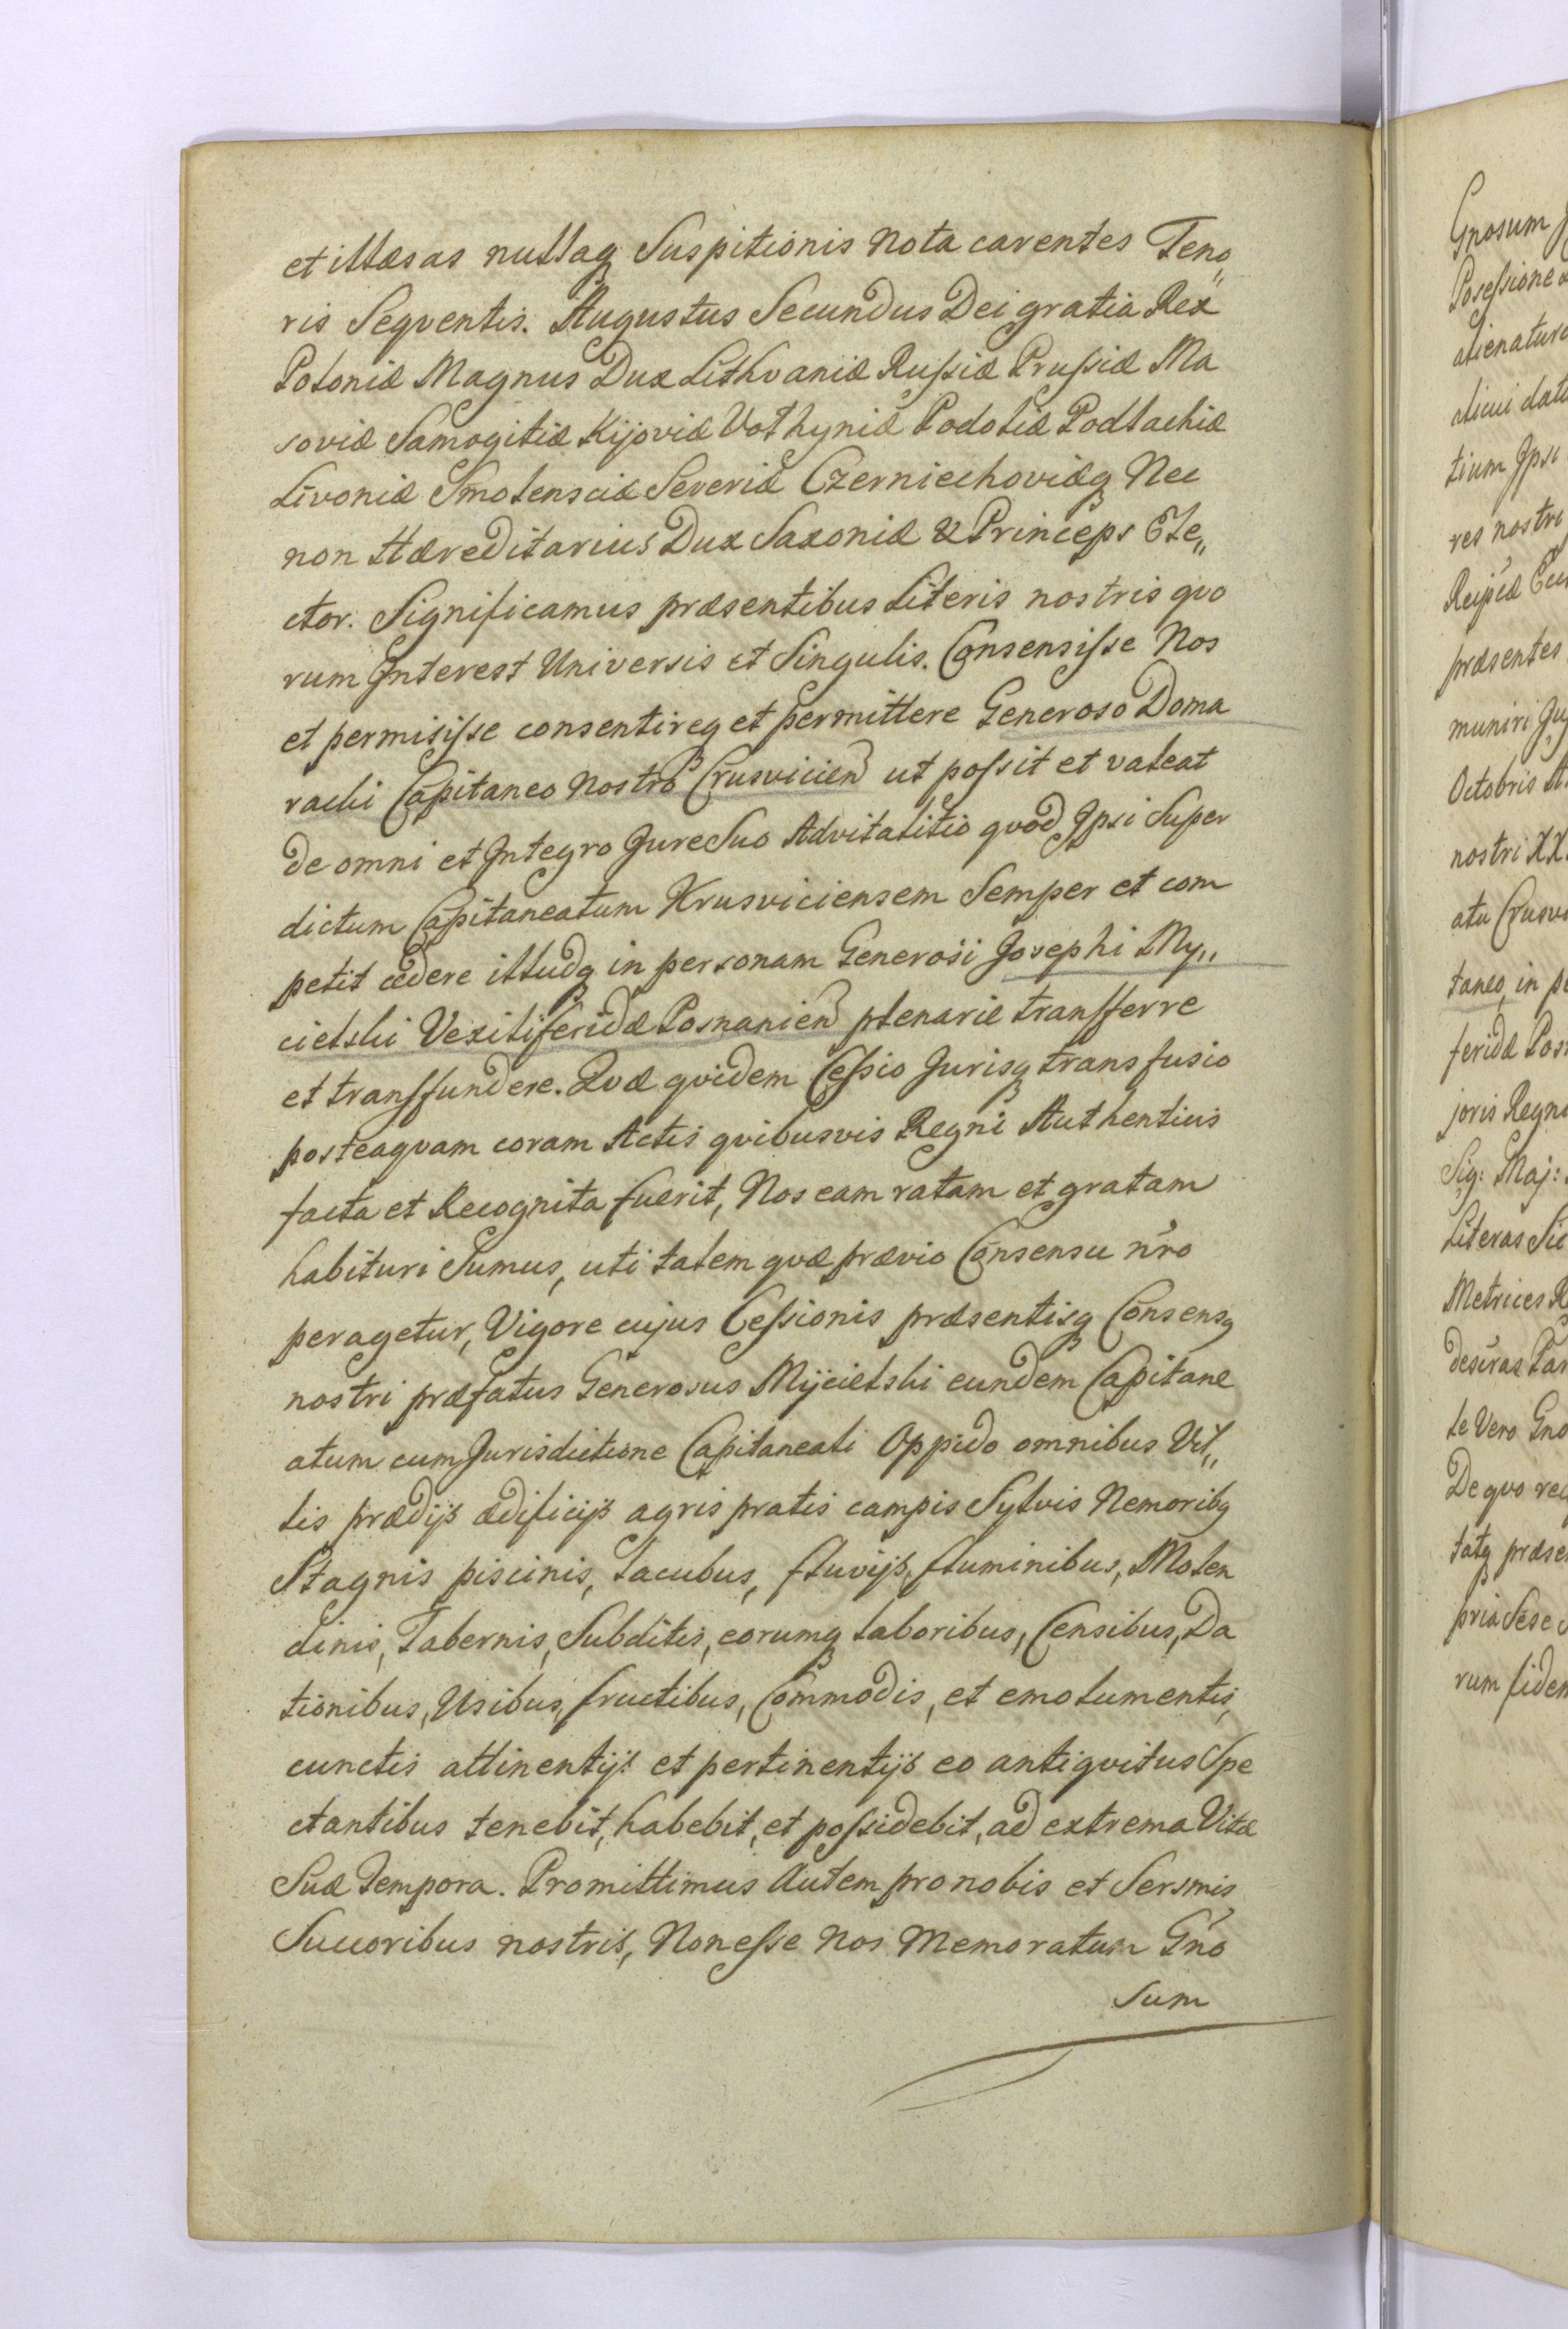 et illæsas nullaqꝫ Suspitionis Nota carentes Teno„
ris Seqventis. Augustus Secundus Dei gratia Rex
Poloniæ Magnus Dux Lithvaniæ Rußiæ Prußiæ Ma
soviæ Samogitiæ Kijoviæ Volhyniæ Podoliæ Podlachiæ
Livoniæ Smolensciæ Severiæ Czerniechoviæqꝫ Nec
non Hæreditarius Dux Saxoniæ & Princeps Ele„
ctor. Significamus præsentibus Literis nostris qvo
rum Interest Universis et Singulis. Consensiſse Nos
et permisiſse consentireqꝫ et permittere Generoso Doma
rachi Capitaneo Nostro Crusvicien ut poſsit et valeat
de omni et Integro Jure Suo Advitalitio qvod Ipsi Super
dictum Capitaneatum Krusviciensem Semper et com
petit cedere illudqꝫ in personam Generosi Josephi My„
cielski Vexiliferidæ Posnanien plenarie transferre
et transfundere. Qvæ qvidem Ceſsio Jurisqꝫ transfusio
posteaqvam coram Actis qvibusvis Regni Authenticis
facta et Recognita fuerit, Nos eam ratam et gratam
habituri Sumus, uti talem qvæ prævio Consensu nro
peragetur, Vigore cujus Ceſsionis præsentisqꝫ Consensq
nostri præfatus Generosus Mÿcielski eundem Capitane
atum cum Jurisdictione Capitaneali Oppido omnibus Vil„
lis prædijs ædificijs agris pratis campis Sylvis Nemoribq
Stagnis piscinis, Lacubus, fluvijs, fluminibus, Molen
dinis, Tabernis, Subditis, eorumqꝫ laboribus, Censibus, Da
tionibus, Usibus, fructibus, Commodis, et emolumentis,
cunctis attinentijs et pertinentijs eo antiqvitus Spe
ctantibus tenebit, habebit, et poſsidebit, ad extrema Vitæ
Suæ Tempora. Promittimus Autem pro nobis et Sersmis
Succoribus nostris, Non eſse Nos Memoratum Gno
sum
Gnosum
Poseſsione
alienatur
alicui dat
tium Ipsi
res nostri
Reipcæ
præsentes
muniri
Octobris
nostri XX
atu Crusvi
taneo, in pe
feridæ Pos
joris Regni
Sig: Maj:
Literas Sic
Metrices R
te Vero Gno
De qvo
tatqꝫ præse
pria Sese
rum fidem